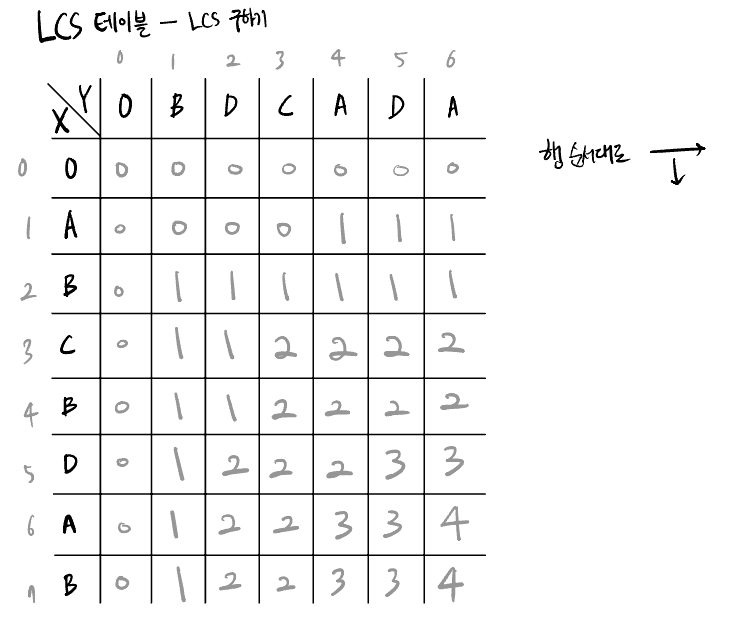 LCS 테이블 - LCS 구하기
0 1 2 3 4 5 6
X Y 0 B D C A D A
0 0 0 0 0 0 0 0 0
1 A 0 0 0 0 1 1 1
2 B 0 1 1 1 1 1 1
3 C 0 1 1 2 2 2 2
4 B 0 1 1 2 2 2 2
5 D 0 1 2 2 2 3 3
6 A 0 1 2 2 3 3 4
7 B 0 1 2 2 3 3 4
행 순서대로 → ↓